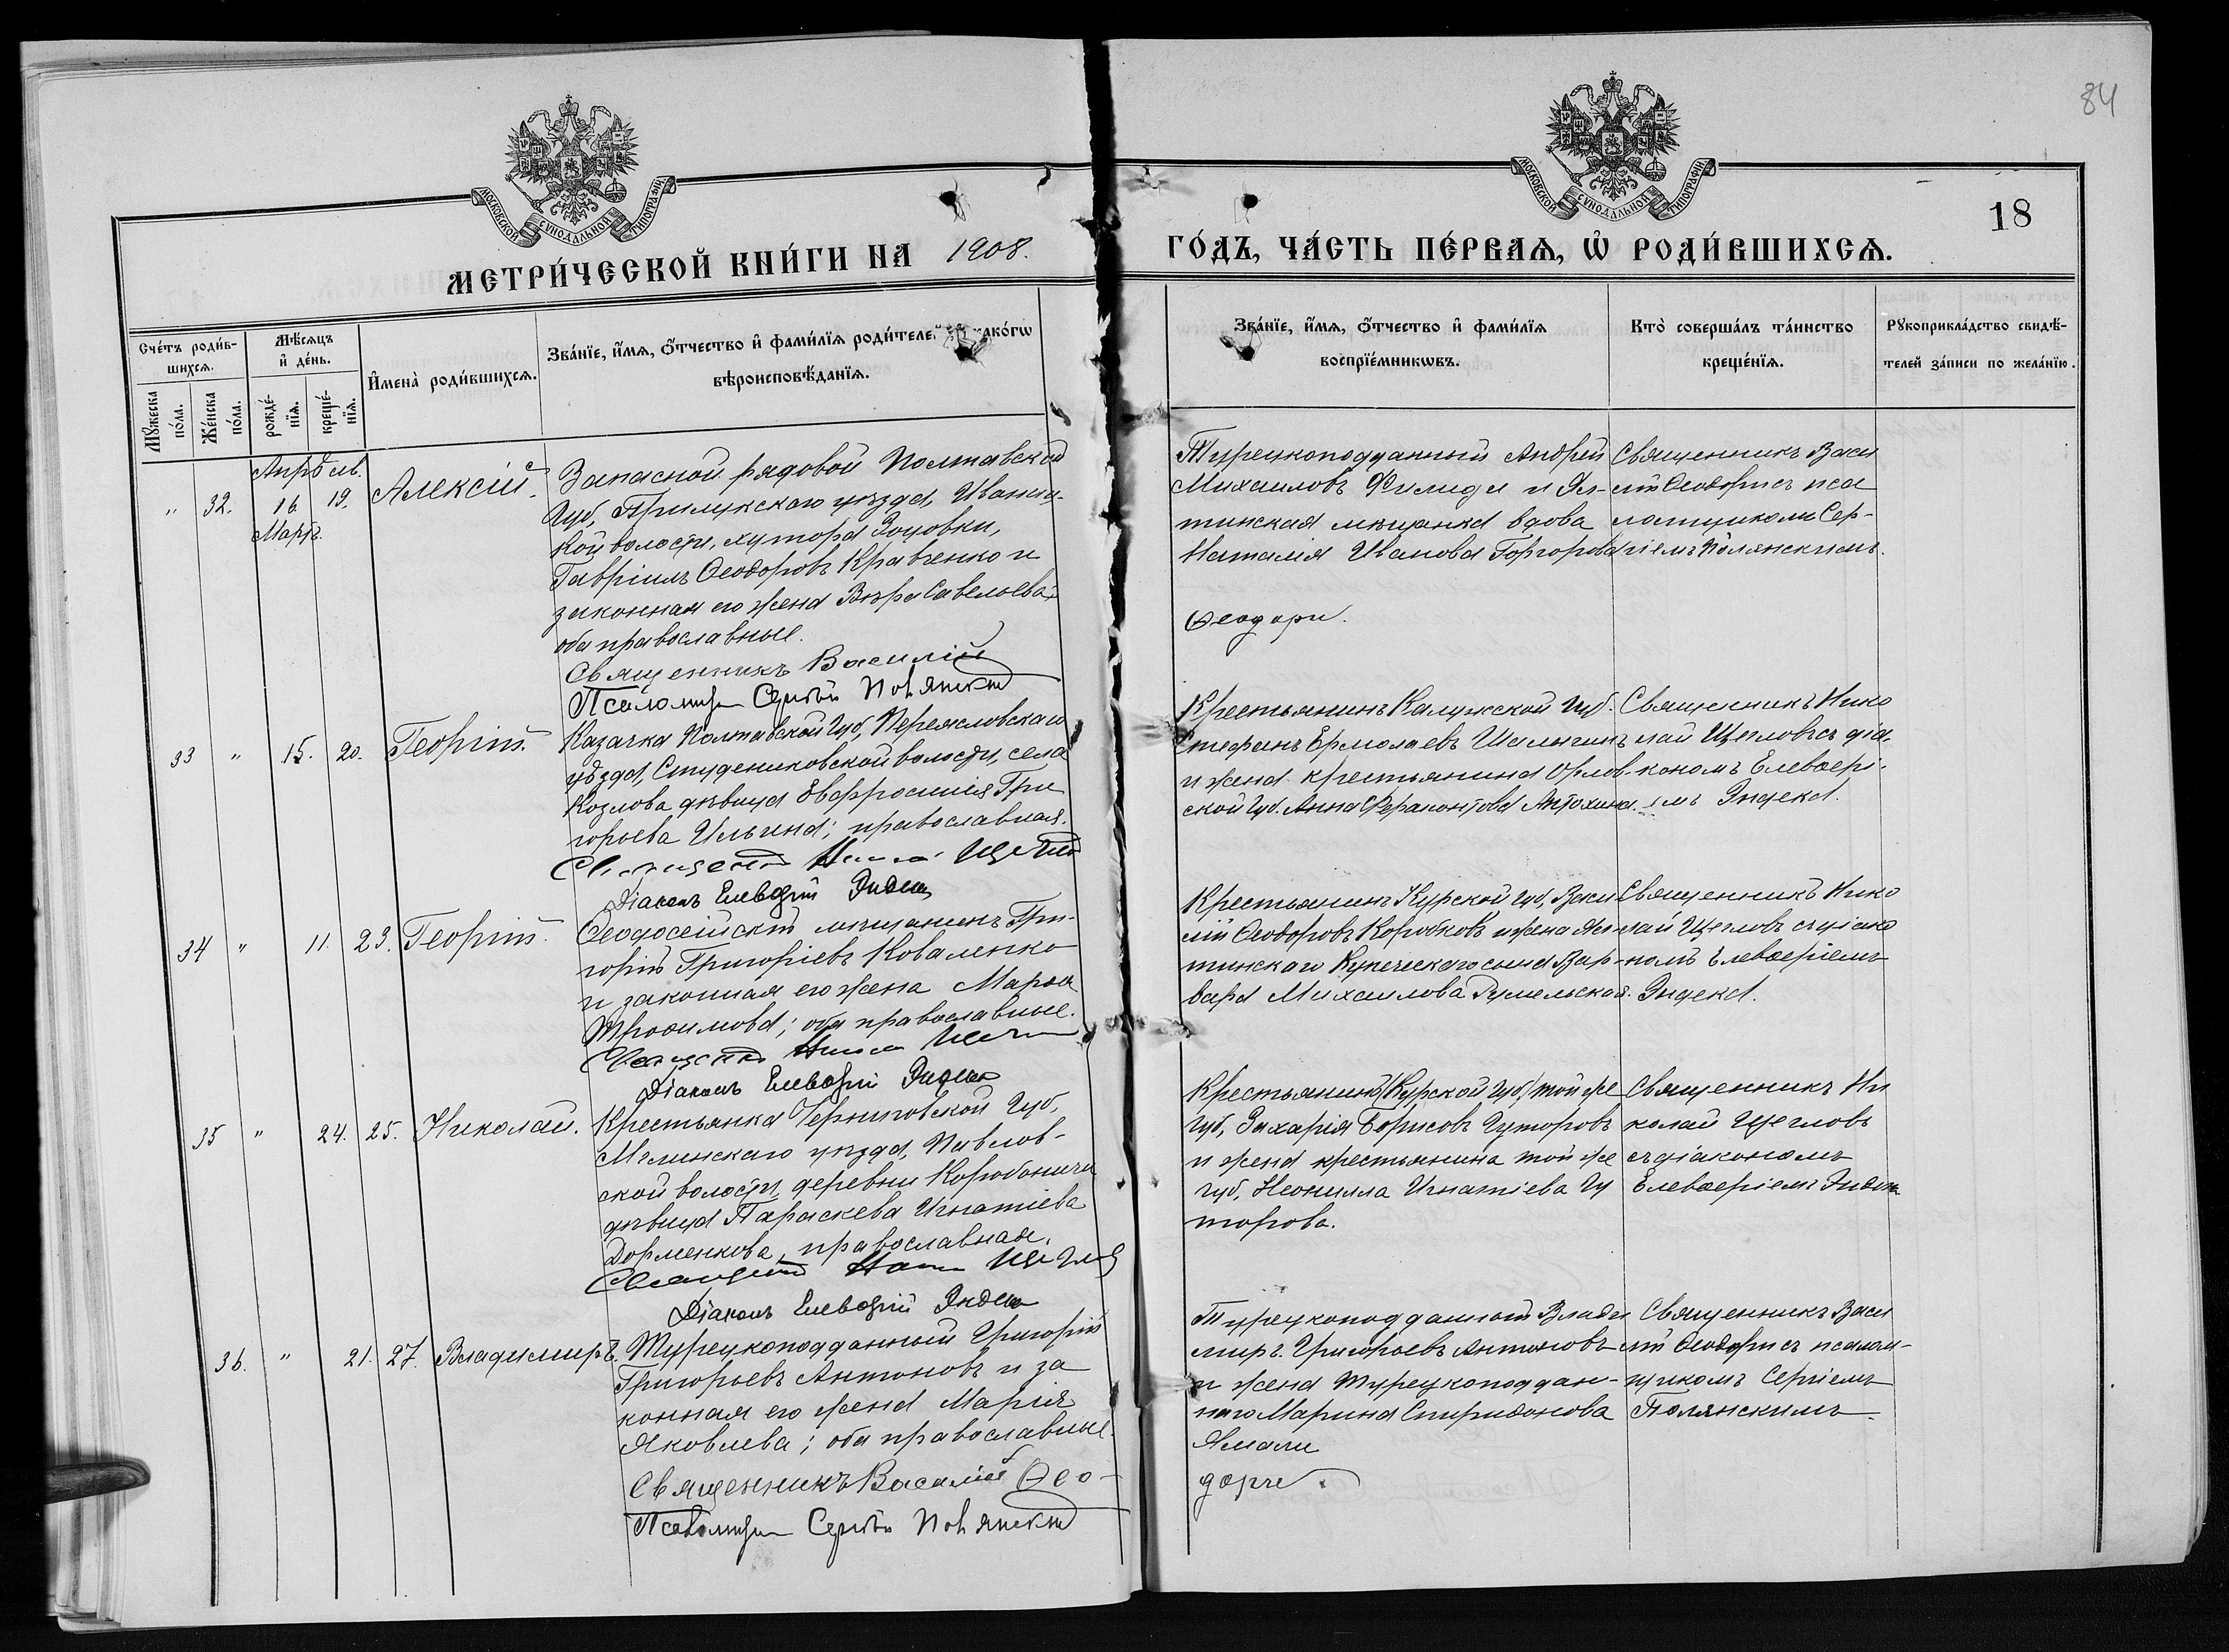 84
18
МОСКОВСКОЙ СѴНОДАЛЬНОЙ ТИПОГРАФІИ
МОСКОВСКОЙ СѴНОДАЛЬНОЙ ТИПОГРАФІИ
МЕТРИ́ЧЕСКОЙ КНИ́ГИ НА 1908.
ГО́ДЪ, ЧА́СТЬ ПЕ́РВАЯ, Ѡ҆ РОДИ́ВШИХСЯ.
Сче́тъ роди́в-
шихся.
Мѣ́сяцъ
и҆ де́нь.
Мꙋ́жеска
по́ла.
Же́нска
по́ла.
рожде́-
нїя.
креще́-
нїя.
И҆мена̀ роди́вшихся.
Зва́нїе, и҆́мя, ѻ҆́тчество и҆ фами́лїя роди́телей
како́гѡ
вѣроисповѣ́данїя.
Зва́нїе, и҆́мя, ѻ҆́тчество и҆ фами́лїя
воспрїе́мникѡвъ.
Кто̀ соверша́лъ та́инство
креще́нїя.
Рꙋкоприкла́дство свидѣ́-
телей за́писи по жела́нїю.
Апрѣль.
" 32. 16 19. Алексій.
Мартъ.
Запасной рядовой Полтавской
губ, Прилукскаго уѣзда, Иваниц-
кой волости, хутора
Гавріилъ Ѳеодоровъ Кравченко и
законная его жена Вѣра Савельева;
оба православные.
Священникъ Василій
Псаломщ Сергѣй Полянскій
Турецкоподданный Андрей
Михаиловъ Филиди и Ял-
тинская мѣщанка вдова
Наталія Иванова
Ѳеодори.
Священникъ Васи
лій Ѳеодори съ пса
ломщикомъ Сер-
гіемъ Полянскимъ.
33 " 15. 20. Георгій.
Казачка Полтавской губ, Переясловскаго
уѣзда, Студениковской волости, села
Козлова дѣвица Евфросинія Гри
горьева Ильина; православная.
Священникъ Щегловъ
Діаконъ Елевѳерій Эндека
Крестьянинъ Калужской губ.
Стефанъ Ермолаевъ Шалыгинъ
и жена крестьянина Орлов-
ской губ. Анна Ферапонтова Антохина.
Священникъ Нико
лай Щегловъ съ діа-
кономъ Елевѳері-
емъ Эндека.
34 " 11. 23. Георгій.
Ѳеодосійскій мѣщанинъ Гри-
горій Григоріевъ Коваленко
и законная его жена Марѳа
Трофимова; оба православные.
Священникъ
Діаконъ Елевѳерій Эндека
Крестьянинъ Курской губ, Васи
лій Ѳеодоровъ Коробковъ и жена Ял
тинскаго купеческаго сына Вар-
вара Михаилова Румельская.
Священникъ Нико
лай Щегловъ съ діако
номъ Елевѳеріемъ
Эндека.
35 " 24. 25. Николай.
Крестьянка Черниговской губ,
Мглинскаго уѣзда, Павлов-
ской волости, деревни Коробоничи
дѣвица Параскева Игнатіева
Дорменкова, православная.
Священникъ Щегловъ
Діаконъ Елевѳерій Эндека
Крестьянинъ (Курской губ) той же
губ, Захарія Борисовъ Гуторовъ
и жена крестьянина той же
губ, Неонилла Игнатіева Гу
торова.
Священникъ Ни
колай Щегловъ
съ діакономъ
Елевѳеріемъ Эндека
36. " 21. 27. Владимиръ.
Турецкоподданный Григорій
Григорьевъ Антоновъ и за
конная его жена Марія
Яковлева; оба православные.
Священникъ Василій Ѳео-
Псаломщ Сергѣй Полянскій
Турецкоподданный Влади
миръ Григорьевъ Антоновъ
и жена Турецкоподдан-
наго Марина Спиридонова
Ямали
дори.
Священникъ Васи
лій Ѳеодори съ псалом-
щикомъ Сергіемъ
Полянскимъ.